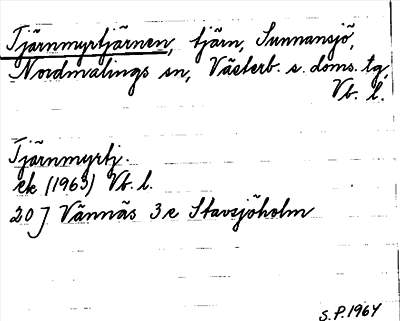 Tjärnmyrtjärnen, tjärn, Sunnansjö,
Nordmalings sn, Västerb. s. doms. tg,
Vb. l.
Tjärnmyrtj.
ek (1963) Vb. l.
20 J Vännäs 3 e Stavsjöholm
S.P. 1964